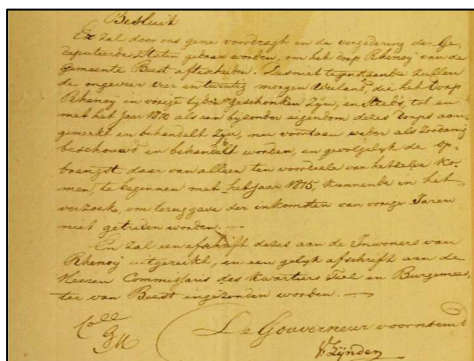 Besluit
Er zal door ons gene voordragt in de vergadering der Ge-
deputeerde Staten gedaan worden, om het dorp Rhenoij van de
Gemeente Beest afte scheiden. Desniettegenstaande zullen
de ongeveer vier en twintig morgen Weiland, die het dorp
Rhenoij in vorige tijden geschonken zijn, en steeds, tot en
met het Jaar 1810 als een byzonder eigendom deszes dorps aan-
gemerkt en behandelt zijn, nu voortaan weder als zoodanig
beschouwd en behandelt worden, en gevolgelijk de op-
brengst, daar van alleen ten voordeele van hetzelve ko-
men, te beginnen met het Jaar 1815, kunnende in het
verzoek, om teruggave der inkomsten van vorige Jaren
niet getreden worden.
En zal een afschrift dezes aan de Inwoners van
Rhenoij uitgereikt, en een gelyk afschrift aan de
Heeren Commissaris des Kwartiers Tiel en Burgemees-
ter van Beest ingezonden worden.
De Gouverneur voornoemd